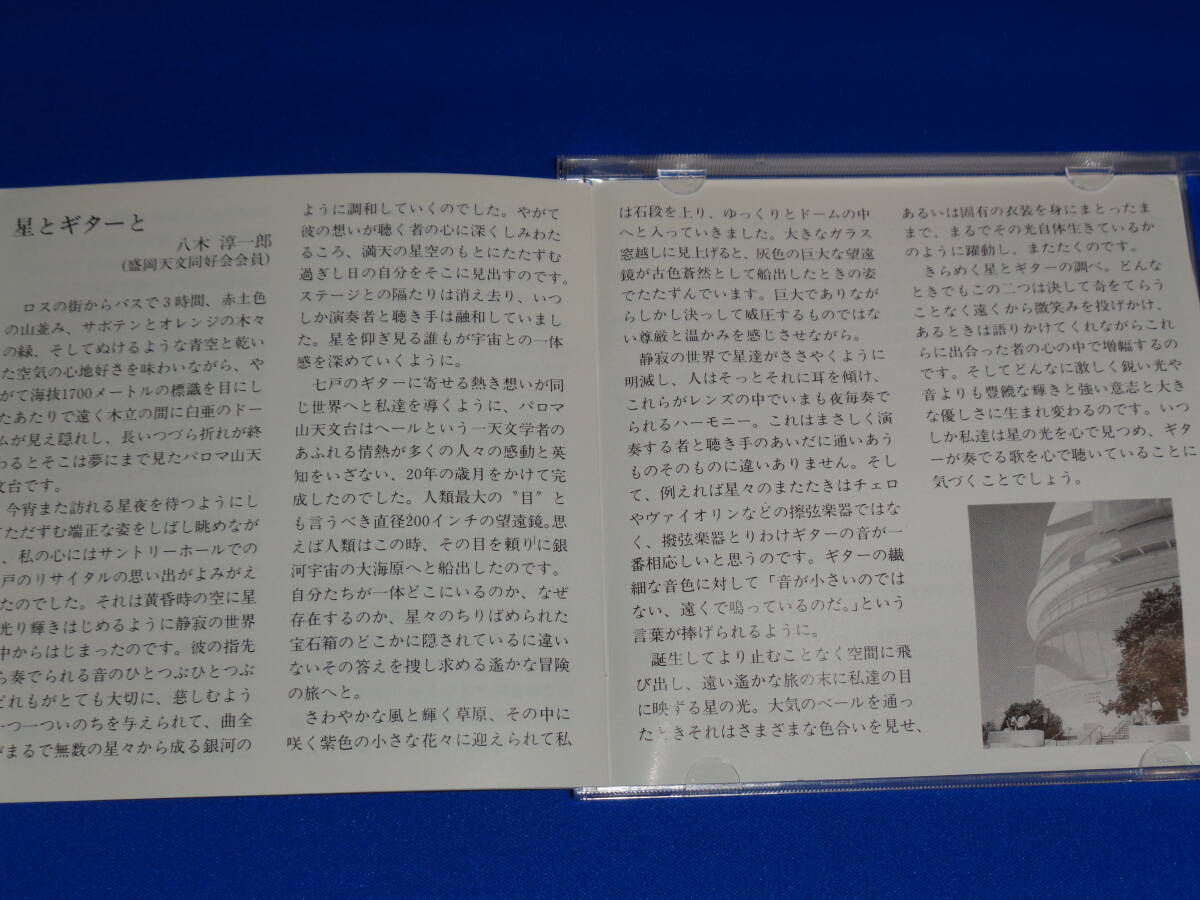 星とギターと
八木 淳一郎
(盛岡天文同好会会員)
ロスの街からバスで3時間、赤土色
の山並み、サボテンとオレンジの木々
の緑、そしてぬけるような青空と乾い
た空気の心地好さを味わいながら、や
がて海抜1700メートルの標識を目にし
たあたりで遠く木立の間に白亜のドー
ムが見え隠れし、長いつづら折れが終
わるとそこは夢にまで見たパロマ山天
文台です。
今宵また訪れる星夜を待つようにし
てただずむ端正な姿をしばし眺めなが
、私の心にはサントリーホールでの
戸のリサイタルの思い出がよみがえ
たのでした。それは黄昏時の空に星
光り輝きはじめるように静寂の世界
中からはじまったのです。彼の指先
ら奏でられる音のひとつぶひとつぶ
どれもがとても大切に、慈しむよう
一つ一ついのちを与えられて、曲全
がまるで無数の星々から成る銀河の
ように調和していくのでした。やがて
彼の想いが聴く者の心に深くしみわた
るころ、満天の星空のもとにたたずむ
過ぎし日の自分をそこに見出すのです。
ステージとの隔たりは消え去り、いつ
しか演奏者と聴き手は融和していまし
た。星を仰ぎ見る誰もが宇宙との一体
感を深めていくように。
七戸のギターに寄せる熱き想いが同
じ世界へと私達を導くように、パロマ
山天文台はヘールという一天文学者の
あふれる情熱が多くの人々の感動と英
知をいざない、20年の歳月をかけて完
成したのでした。人類最大の〝目〟と
も言うべき直径200インチの望遠鏡。思
えば人類はこの時、その目を頼りに銀
河宇宙の大海原へと船出したのです。
自分たちが一体どこにいるのか、なぜ
存在するのか、星々のちりばめられた
宝石箱のどこかに隠されているに違い
ないその答えを捜し求める遙かな冒険
の旅へと。
さわやかな風と輝く草原、その中に
咲く紫色の小さな花々に迎えられて私
は石段を上り、ゆっくりとドームの中
へと入っていきました。大きなガラス
窓越しに見上げると、灰色の巨大な望遠
鏡が古色蒼然として船出したときの姿
でたたずんでいます。巨大でありなが
らしかし決っして威圧するものではな
い尊厳と温かみを感じさせながら。
静寂の世界で星達がささやくように
明滅し、人はそっとそれに耳を傾け、
これらがレンズの中でいまも夜毎奏で
られるハーモニー。これはまさしく演
奏する者と聴き手のあいだに通いあう
ものそのものに違いありません。そし
て、例えれば星々のまたたきはチェロ
やヴァイオリンなどの擦弦楽器ではな
く、撥弦楽器とりわけギターの音が一
番相応しいと思うのです。ギターの繊
細な音色に対して「音が小さいのでは
ない、遠くで鳴っているのだ。」という
言葉が捧げられるように。
誕生してより止むことなく空間に飛
び出し、遠い遙かな旅の末に私達の目
に映ずる星の光。大気のベールを通っ
たときそれはさまざまな色合いを見せ、
あるいは固有の衣装を身にまとったま
まで、まるでその光自体生きているか
のように躍動し、またたくのです。
きらめく星とギターの調べ。どんな
ときでもこの二つは決して奇をてらう
ことなく遠くから微笑みを投げかけ、
あるときは語りかけてくれながらこれ
らに出合った者の心の中で増幅するの
です。そしてどんなに激しく鋭い光や
音よりも豊饒な輝きと強い意志と大き
な優しさに生まれ変わるのです。いつ
しか私達は星の光を心で見つめ、ギタ
ーが奏でる歌を心で聴いていることに
気づくことでしょう。